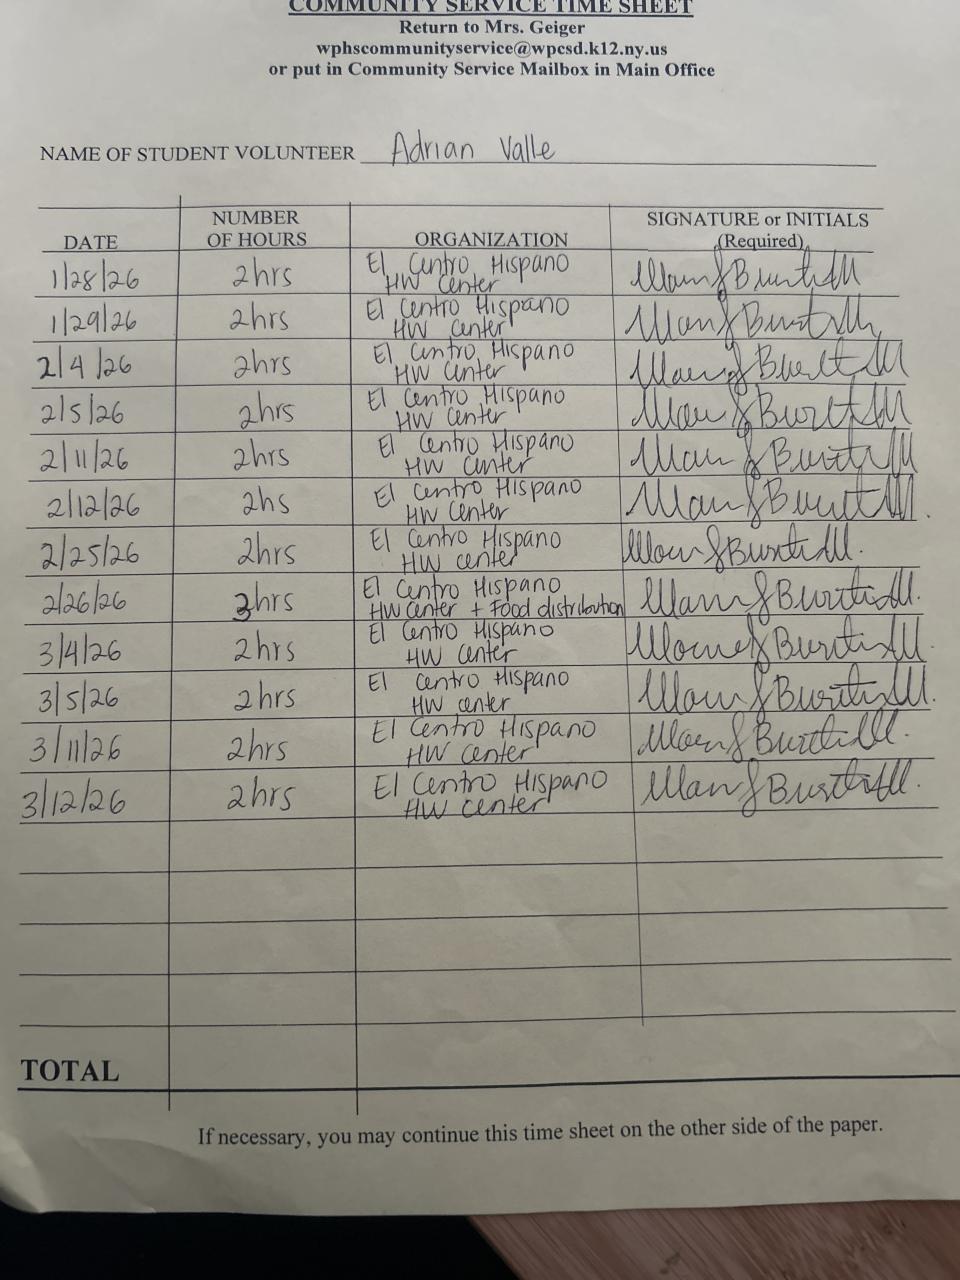 COMMUNITY SERVICE TIME SHEET
Return to Mrs. Geiger
wphscommunityservice@wpcsd.k12.ny.us
or put in Community Service Mailbox in Main Office
NAME OF STUDENT VOLUNTEER Adrian Valle
DATE NUMBER OF HOURS ORGANIZATION SIGNATURE or INITIALS (Required)
1/28/26 2hrs El Centro Hispano HW Center
1/29/26 2hrs El Centro Hispano HW Center
2/4/26 2hrs El Centro Hispano HW Center
2/5/26 2hrs El Centro Hispano HW Center
2/11/26 2hrs El Centro Hispano HW Center
2/12/26 2hs El Centro Hispano HW Center
2/25/26 2hrs El Centro Hispano HW center
2/26/26 3hrs El Centro Hispano HW Center + Food distribution
3/4/26 2hrs El Centro Hispano HW Center
3/5/26 2hrs El Centro Hispano HW center
3/11/26 2hrs El Centro Hispano HW Center
3/12/26 2hrs El Centro Hispano HW center
TOTAL
If necessary, you may continue this time sheet on the other side of the paper.